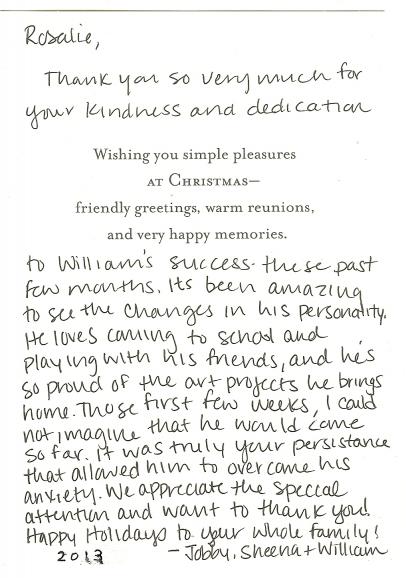 Rosalie,
Thank you so very much for
your kindness and dedication
Wishing you simple pleasures
AT CHRISTMAS—
friendly greetings, warm reunions,
and very happy memories.
to William's success these past
few months. Its been amazing
to see the changes in his personality.
He loves coming to school and
playing with his friends, and he's
so proud of the art projects he brings
home. Those first few weeks, I could
not imagine that he would come
so far. It was truly your persistance
that allowed him to overcome his
anxiety. We appreciate the special
attention and want to thank you!
Happy Holidays to your whole family!
2013 - Jobby, Sheena + William